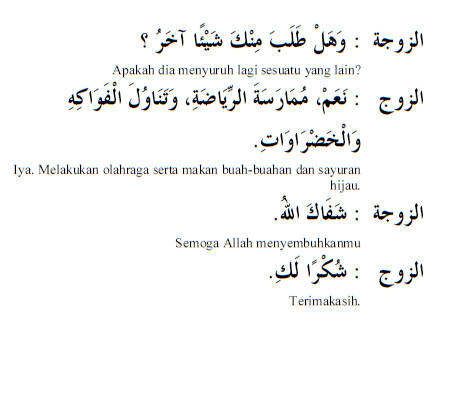 الزوجة : وَهَلْ طَلَبَ مِنْكَ شَيْئًا آخَرُ ؟
Apakah dia menyuruh lagi sesuatu yang lain?
الزوج : نَعَمْ، مُمَارَسَةَ الرِّيَاضَةِ، وَتَنَاوُلَ الْفَوَاكِهِ
وَالْخَضْرَاوَاتِ.
Iya. Melakukan olahraga serta makan buah-buahan dan sayuran
hijau.
الزوجة : شَفَاكَ اللهُ.
Semoga Allah menyembuhkanmu
الزوج : شُكْرًا لَكِ.
Terimakasih.